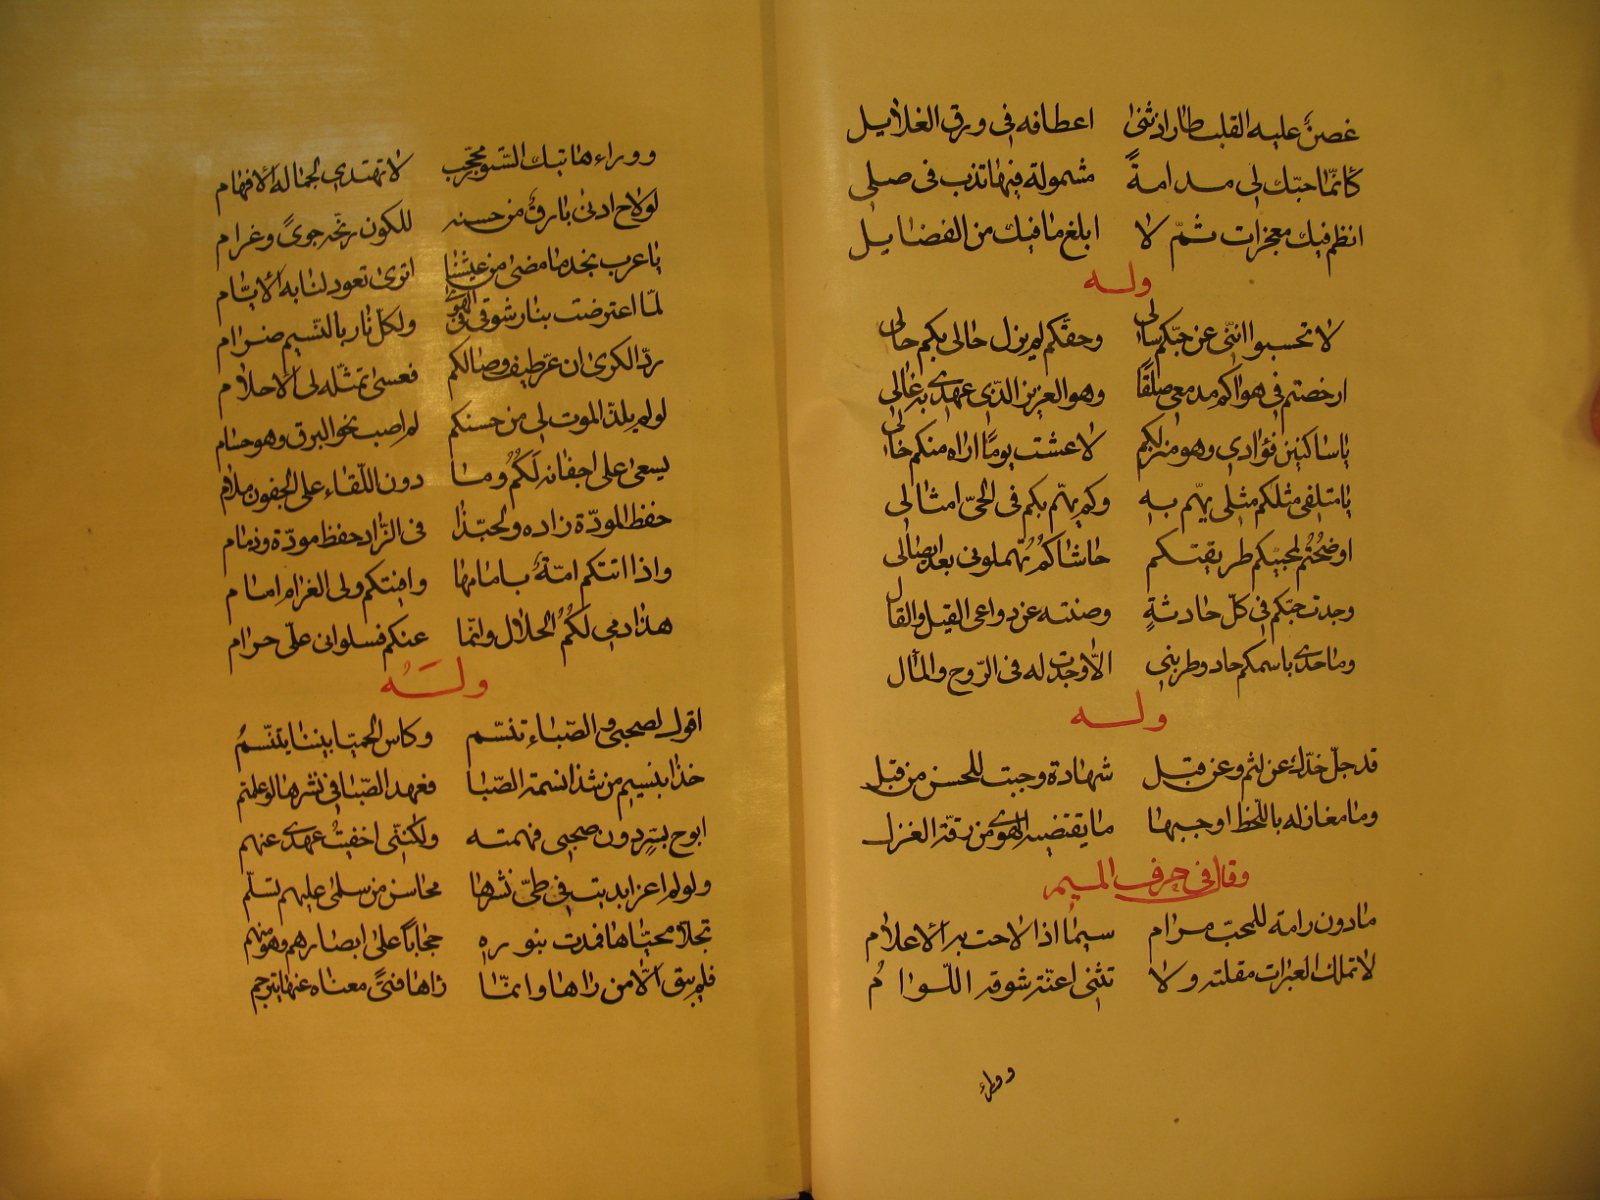 غصنٌ عليه القلب طار اذ ثنى اعطافه فى ورق الغلايل
كانّما حبّك لى مدامةً مشمولة فيها تذب فى صلى
انظم فيك معجزات ثمّ لا ابلغ ما فيك من الفضايل
وله
لا تحسبوا انّنى عن حبّكم سالى وحقّكم لم يزل حالى بكم حالى
ارخصتم فى هواكم مدمعى صلقًا وهو العزيز الذّى عهدى به غالى
يا ساكنين فؤادى وهو منزلكم لا عشت يومًا اراه منكم خالى
يا متلفى مثلكم مثلى يهّم به وكم يهّم بكم فى الحىّ امثالى
اوضحُتُم لمحبّيكم طريقتكم حاشاكُمُ تُهملونى بعد ايصالى
وجدت حبّكم فى كلّ حادثةٍ وصنته عن دواعى القيل والقال
وما حدى باسمكم حاد وطربنى الّا وجدت له فى الرّوح والمال
وله
قد جلّ خدّك عن لثم وعن قبل شهادة وجبت للحسن من قبل
وما مغازله باللّحظ اوجبها ما يقتضيه الهوى من رقّة الغزل
وقال فى حرف الميم
ما دون رامة للمحبّ مرام سيما اذا لاحت به الاعلام
لا تملك العبرات مقلته ولا تثنى اعنّة شوقه اللّوامُ
ووراء
ووراء هاتيك السّتور محجّب لا تهتدى لجماله الافهام
لولاح ادنى بارقٌ من حسنه للكون رنّحه جوىً وغرام
يا عرب نجد ما مضى من عيشنا اترى تعود لنا به الايّام
لمّا اعترضت بنار شوقى فى الهوى ولكلّ نار بالنّسيم ضرام
ردّ الكرى ان عزّ طيف وصالكم فعسى تمثّله لى الاحلام
لو لم يلذّ الموت لى من حسنكم لم اصب نحو البرق وهو حسام
يسعى على اجفانه لَكُمُ وما دون اللّقاء على الجفون ملام
حفظ المودّة زاده ولحبّذا فى الزّاد حفظ مودّة وذمام
واذا اتتكم امّةٌ بامامها وافيتكم ولى الغرام امام
هذا دمى لكُمُ الحلال وانّما عنكم فسلوانى علىّ حرام
ولَهُ
اقول لصحبى والصّباء تنسّم وكاس الحميّا بيننا يتنسّمُ
خذا بنسيم من شذا نسمة الصّبا فعهد الصّبا فى نشرها لو علمتم
ابوح بسرّ دون صحبى فهمته ولكنّنى اخفيتُ عهدى عنهم
ولو لم اعزا بديت فى طىّ نشرها محاسن من سلمى عليهم تسلّم
تجلّا محيّاها فمدت بنوره حجاباً على ابصارهم وهو منهم
فلم يبق الّا من راها وانّما راها فتىً معناه عنها يترجم